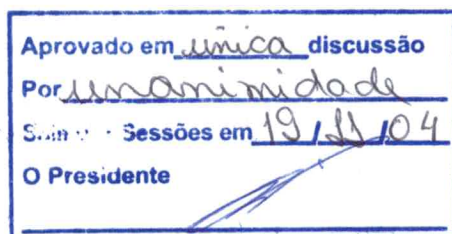 Aprovado em única discussão
Por unanimidade
Sessões em 19/11/04
O Presidente